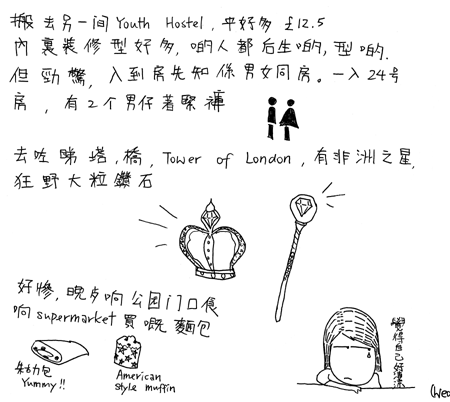 搬去另一间Youth Hostel, 平好多 £12.5
內裏裝修型好多, 啲人都后生啲, 型啲.
但勁驚, 入到房先知係男女同房。一入24号
房, 有2个男仔著緊褲
去咗睇塔,橋, Tower of London, 有非洲之星,
狂野大粒鑽石
好慘, 晚歺响公园门口食
响supermarket買嘅麵包
朱古力包
Yummy!!
American
style muffin
覺得自己好凄涼
(Wed